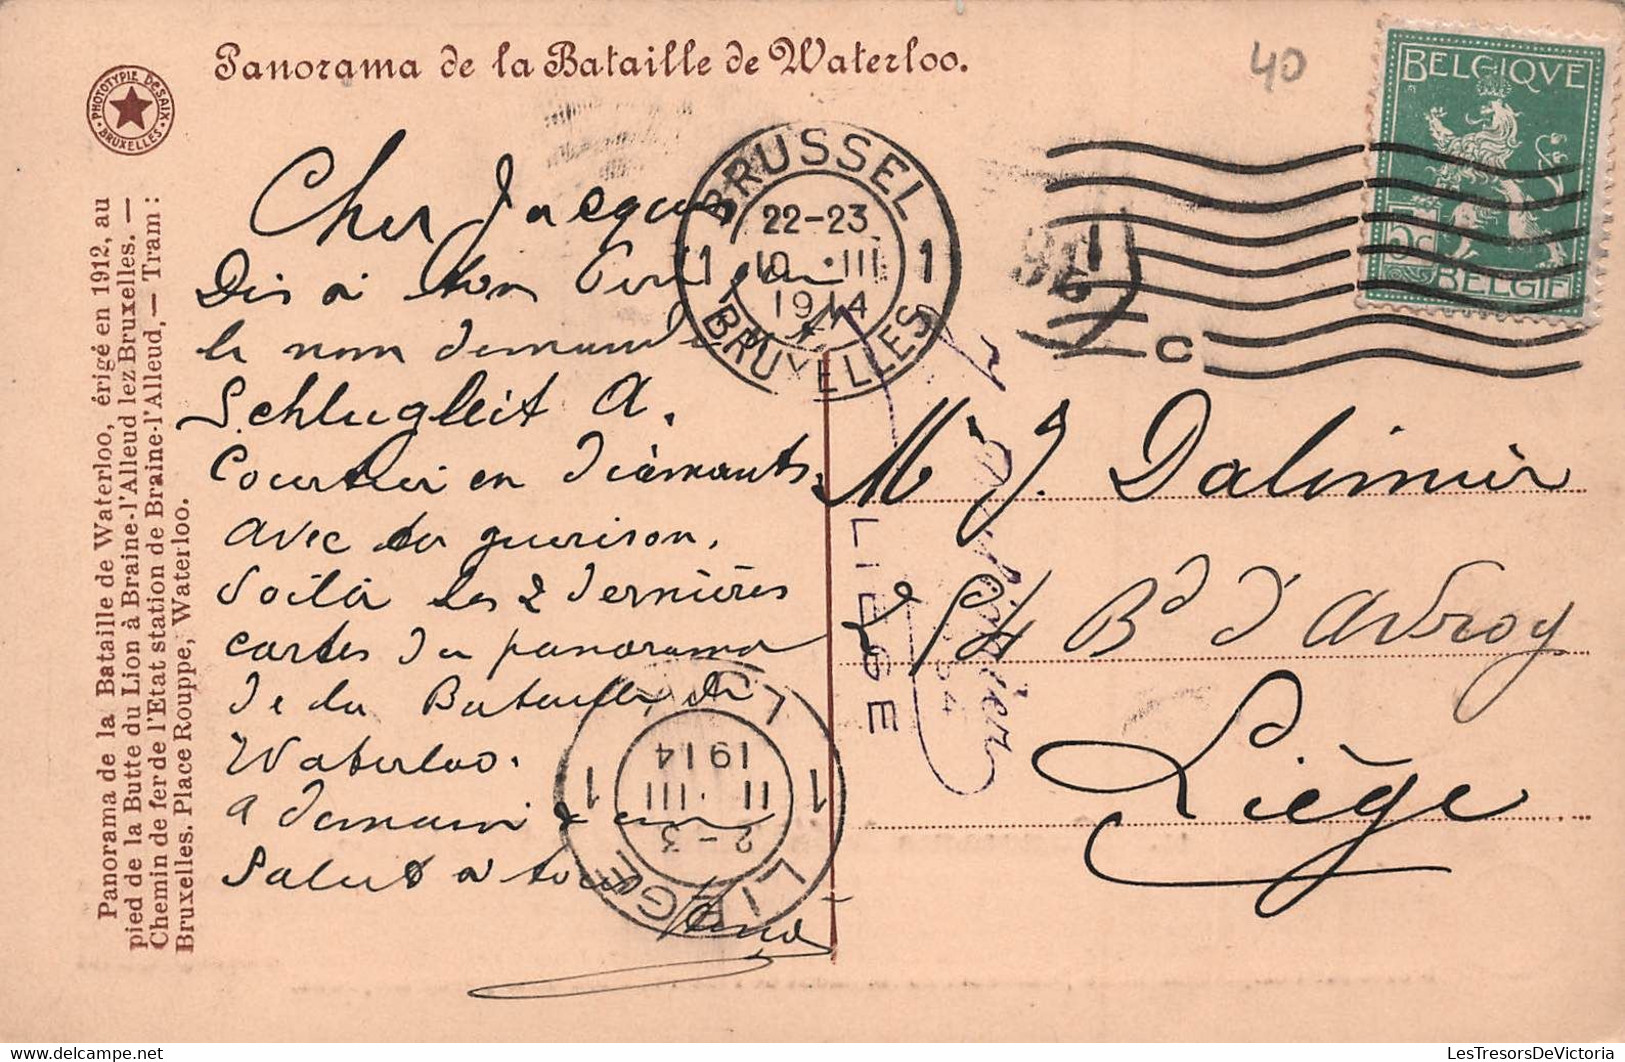 Panorama de la Bataille de Waterloo.
40
PHOTOTYPIE DESAIX
BRUXELLES
BELGIQVE
5c
BELGIË
BRUSSEL
22-23
1 10 · III 1
1914
BRUXELLES
C
Panorama de la Bataille de Waterloo, érigé en 1912, au
pied de la Butte du Lion à Braine-l'Alleud lez Bruxelles. —
Chemin de fer de l'Etat station de Braine-l'Alleud, — Tram:
Bruxelles. Place Rouppe, Waterloo.
Cher Jacques
Dis à mon
le nom demandé
Schlugleit A.
Courtier en diamants
avec sa guerison.
Voilà les 2 dernières
cartes du panorama
de la Bataille de
Waterloo.
a demain
Salut à tous
René
Mr J. Dalimier
54 Bd d'Avroy
Liège
LIEGE
LIEGE
2-3
1 11 · III 1
1914
LUIK
LesTresorsDeVictoria